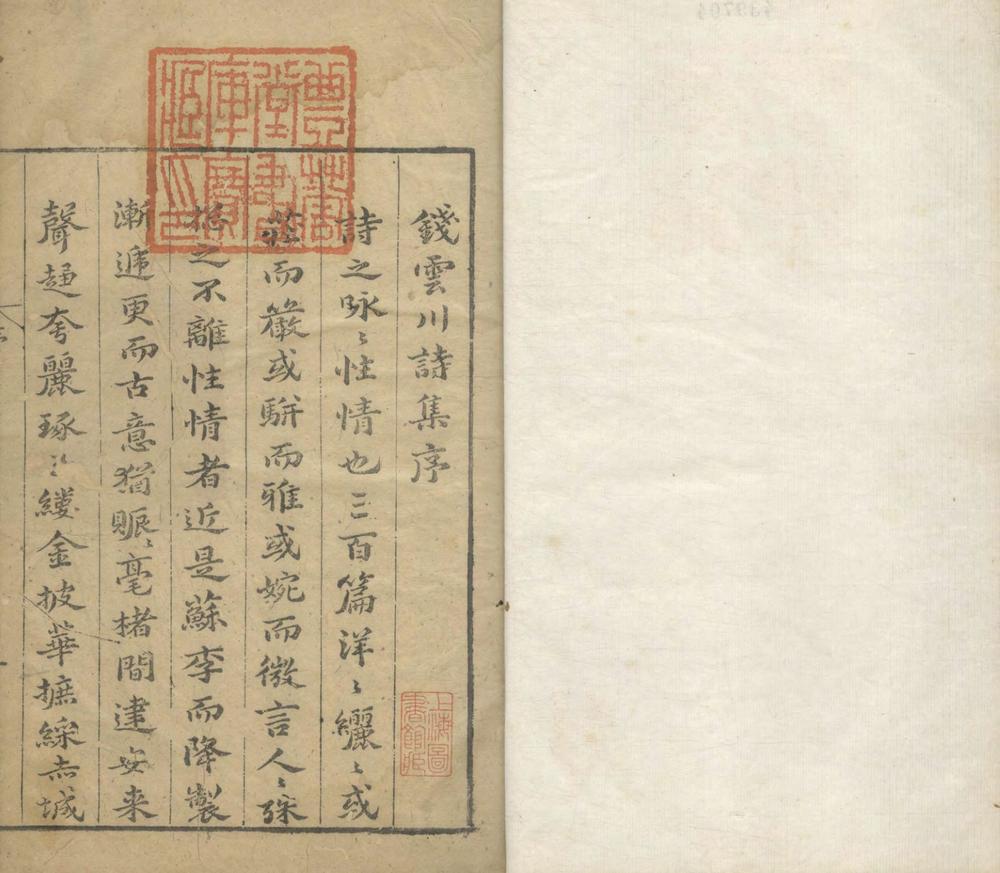 錢雲川詩集序
詩之咏〻性情也三百篇洋〻纚〻或
莊而嚴或駢而雅或婉而微言人〻殊
括之不離性情者近是蘇李而降製
漸遞更而古意猶賑〻毫楮間建安来
聲趨夸麗琢〻縷金披華摭綵赤城
上海圖
書館藏
439704